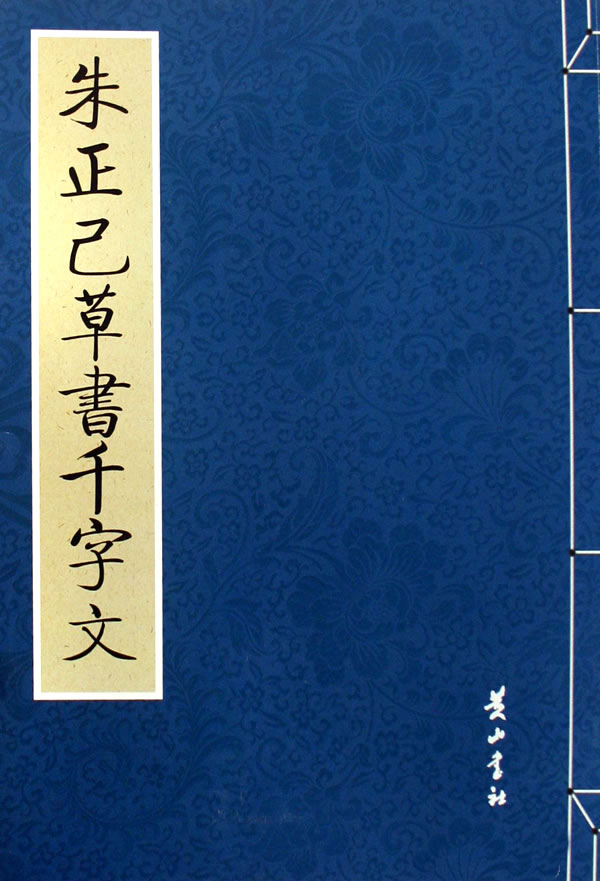 朱正己草書千字文
黄山書社